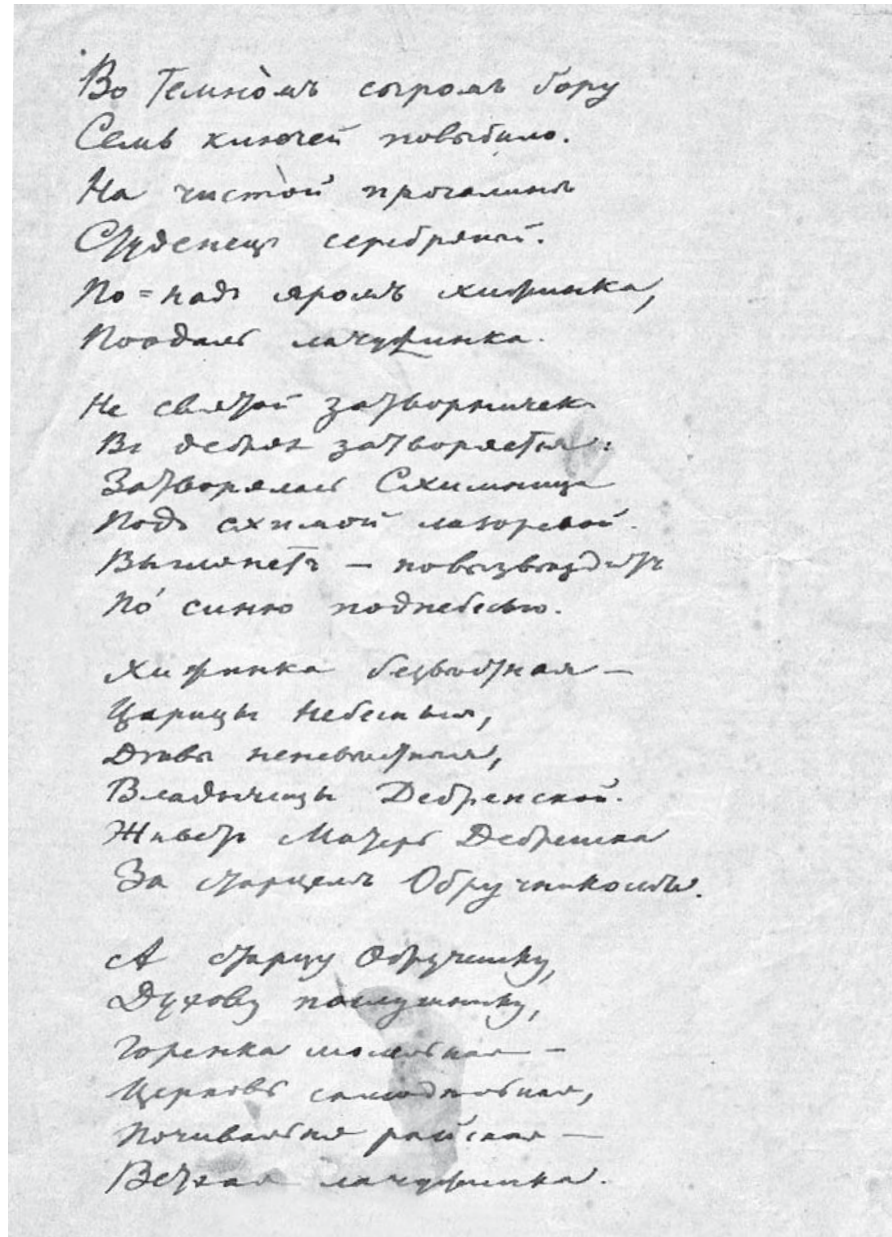 Во темномъ сыромъ бору
Семь ключей повыбило.
На чистой прогалинѣ
Студенецъ серебряный.
По-надъ яромъ хижинка,
Поодаль лачужинка.
Не святой затворничекъ
Въ дебряхъ затворяется:
Затворялась Схимница
Подъ схимой лазоревой.
Выглянетъ – повызвѣздитъ
По́ синю поднебесью.
Хижинка безвѣстная –
Царицы Небесныя,
Дѣвы неневѣстныя,
Владычицы Дебренской.
Живетъ Матерь Дебренска
За старцемъ Обручникомъ.
А старцу Обручнику,
Духову послушнику,
Горенка моленная –
Церковь самодѣльная,
Почивальня райская –
Ветхая лачужинка.